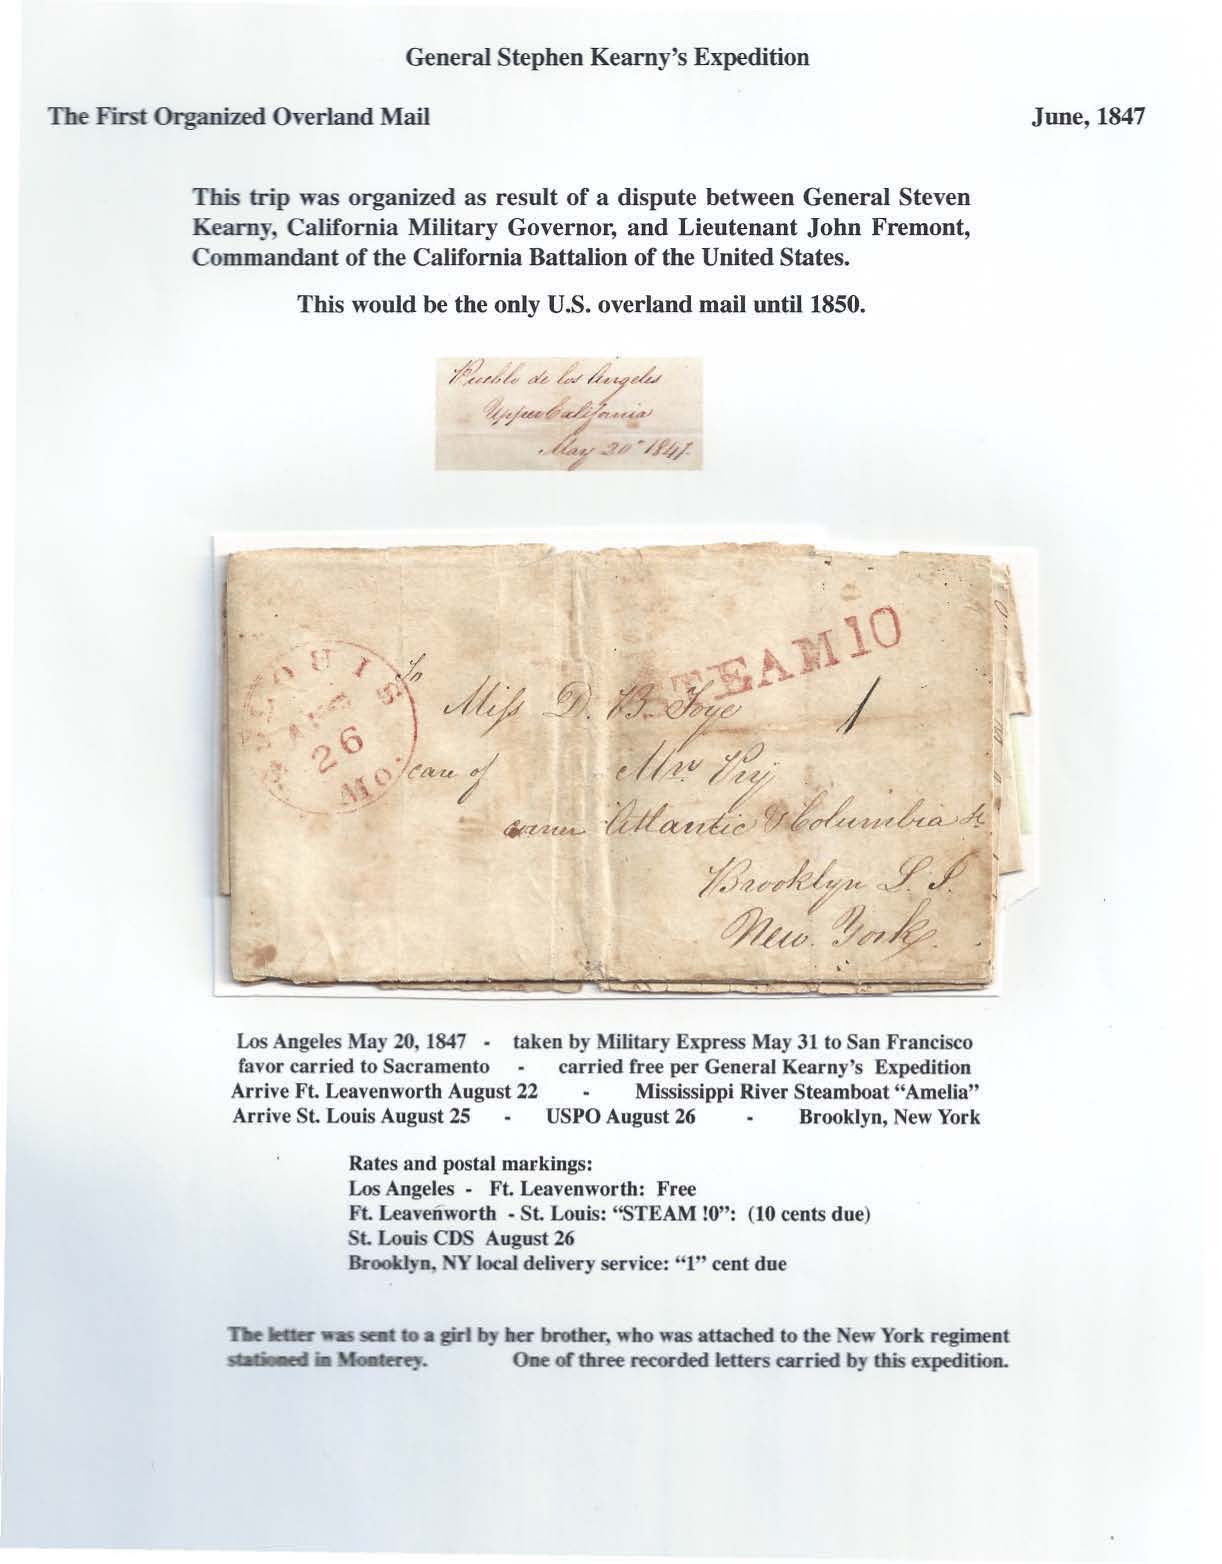 General Stephen Kearny's Expedition
The First Organized Overland Mail June, 1847
This trip was organized as result of a dispute between General Steven
Kearny, California Military Governor, and Lieutenant John Fremont,
Commandant of the California Battalion of the United States.
This would be the only U.S. overland mail until 1850.
Pueblo de los Angeles
Upper California
May 20" 1847.
STEAM 10
To
Miss D. B. Foye
1
LOUIS
AUG
26
Mo.
care of Mr Pry
corner Atlantic & Columbia St.
Brooklyn L. I.
New. York.
Los Angeles May 20, 1847 - taken by Military Express May 31 to San Francisco
favor carried to Sacramento - carried free per General Kearny's Expedition
Arrive Ft. Leavenworth August 22 - Mississippi River Steamboat “Amelia”
Arrive St. Louis August 25 - USPO August 26 - Brooklyn, New York
Rates and postal markings:
Los Angeles - Ft. Leavenworth: Free
Ft. Leavenworth - St. Louis: “STEAM !0”: (10 cents due)
St. Louis CDS August 26
Brooklyn, NY local delivery service: “1” cent due
The letter was sent to a girl by her brother, who was attached to the New York regiment
stationed in Monterey. One of three recorded letters carried by this expedition.